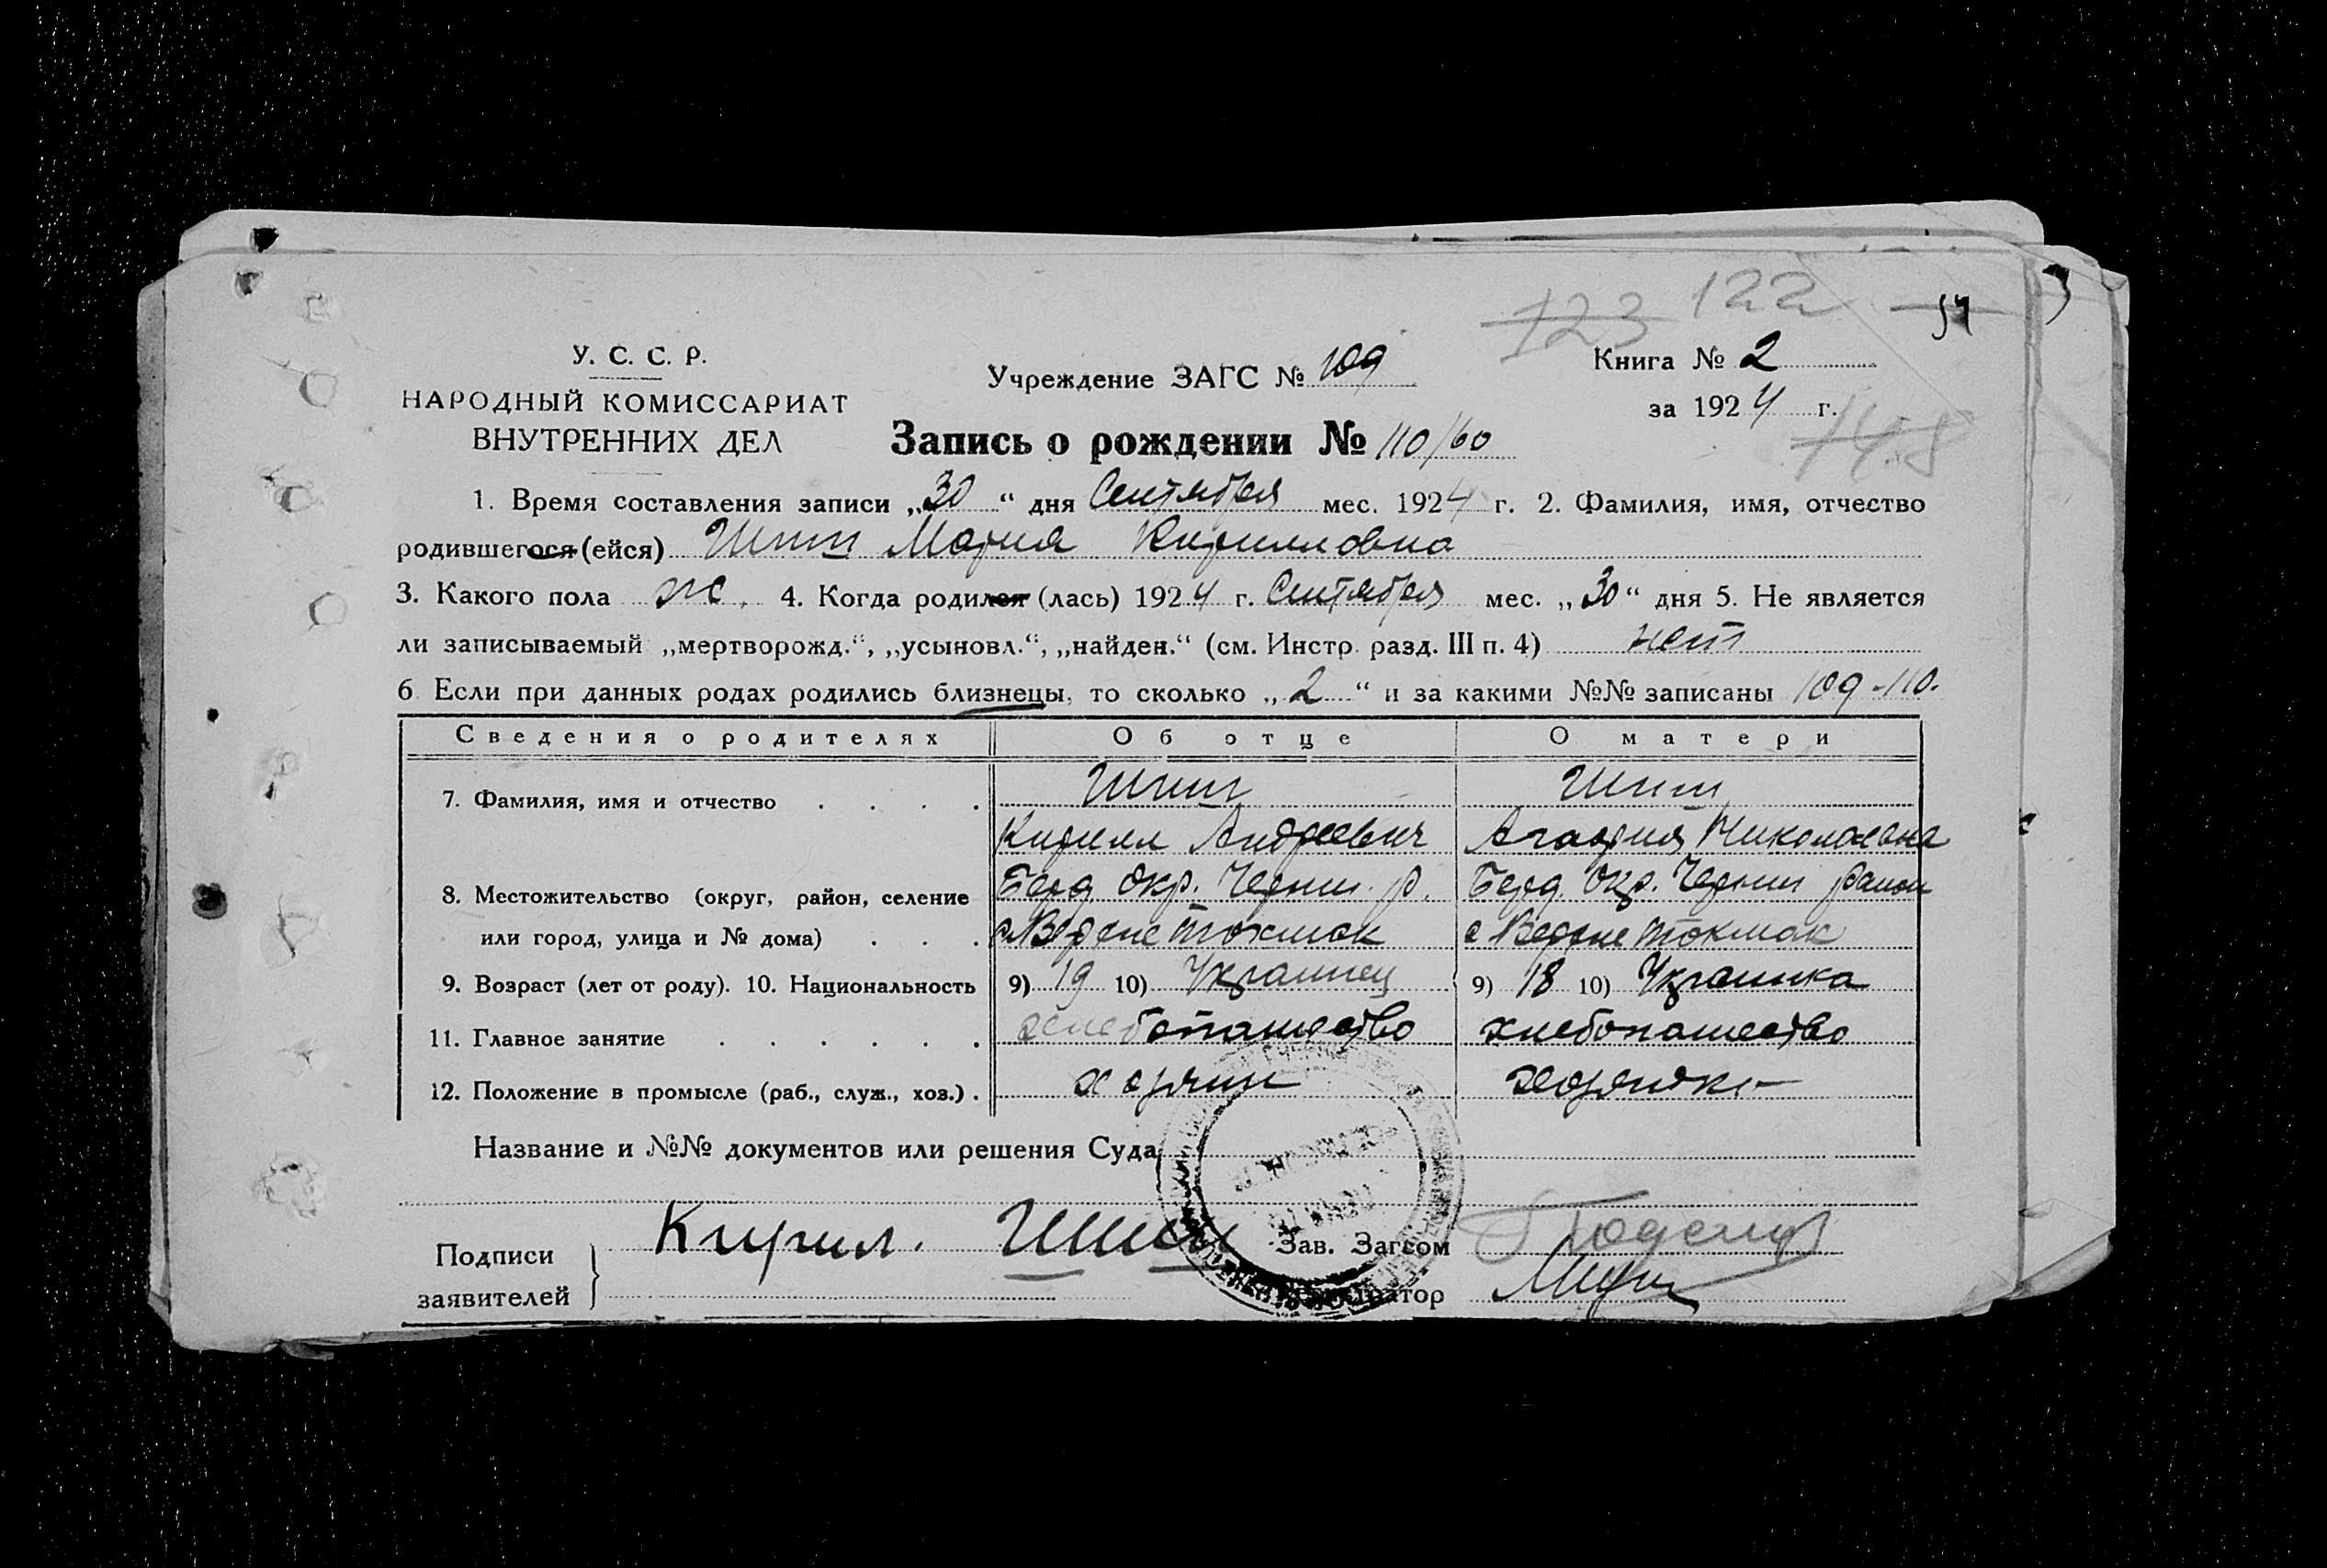 123 122 54
У. С. С. Р.
НАРОДНЫЙ КОМИССАРИАТ
ВНУТРЕННИХ ДЕЛ
Учреждение ЗАГС № 109
Книга № 2
за 1924 г.
148
Запись о рождении № 110/60
1. Время составления записи „30“ дня Сентября мес. 1924 г. 2. Фамилия, имя, отчество
родившегося (ейся) Шпит Мария Кирилловна
3. Какого пола ж. 4. Когда родился (лась) 1924 г. Сентября мес. „30“ дня 5. Не является
ли записываемый „мертворожд.“, „усыновл.“, „найден.“ (см. Инстр. разд. III п. 4) нет
6 Если при данных родах родились близнецы, то сколько „2“ и за какими №№ записаны 109-110.
Сведения о родителях Об отце О матери
7. Фамилия, имя и отчество . . . . Шпит Шпит
Кирилл Андреевич Агафия Николаевна
8. Местожительство (округ, район, селение Берд. Окр. Черниг. р. Берд. Окр. Черниг район
или город, улица и № дома) . . . с Верхне Токмак с Верхне Токмак
9. Возраст (лет от роду). 10. Национальность 9) 19 10) Украинец 9) 18 10) Украинка
11. Главное занятие . . . . . . хлебопашество хлебопашество
12. Положение в промысле (раб., служ., хоз.) . хозяин хозяйка
Название и №№ документов или решения Суда
Подписи
заявителей
Кирил. Зав. Загсом